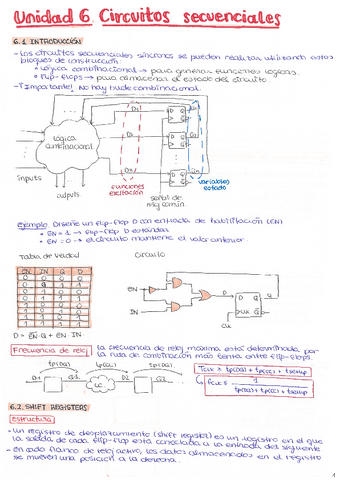 Unidad 6. Circuitos secuenciales
6.1 INTRODUCCIÓN
- Los circuitos secuenciales síncronos se pueden realizar utilizando estos
bloques de construcción:
• Lógica combinacional → para generar funciones lógicas.
• Flip-flops → para almacenar el estado del circuito
- ¡Importante! No hay bucle combinacional.
D1
D Q
Q1
lógica
combinacional
D Q
inputs
outputs
funciones
excitación
señal de
reloj común
variables
estado
Ejemplo. Diseñe un flip-flop D con entrada de habilitación (EN)
• EN = 1 → flip-flop D estándar
• EN = 0 → el circuito mantiene el valor anterior
Tabla de verdad
Circuito
EN IN Q D
0 0 0 0
0 0 1 1
0 1 0 0
0 1 1 1
1 0 0 0
1 0 1 0
1 1 0 1
1 1 1 1
EN
IN
D Q
CLK
D = EN·Q + EN·IN
Frecuencia de reloj
La frecuencia de reloj máxima está determinada por
la ruta de combinación más lenta entre flip-flops.
D1
Q1
LC
D2
Q2
6.2. SHIFT REGISTERS
Estructura
- Un registro de desplazamiento (shift register) es un registro en el que
la salida de cada flip-flop está conectada a la entrada del siguiente
- En cada flanco de reloj activo, los datos almacenados en el registro
se mueven una posición a la derecha.
1